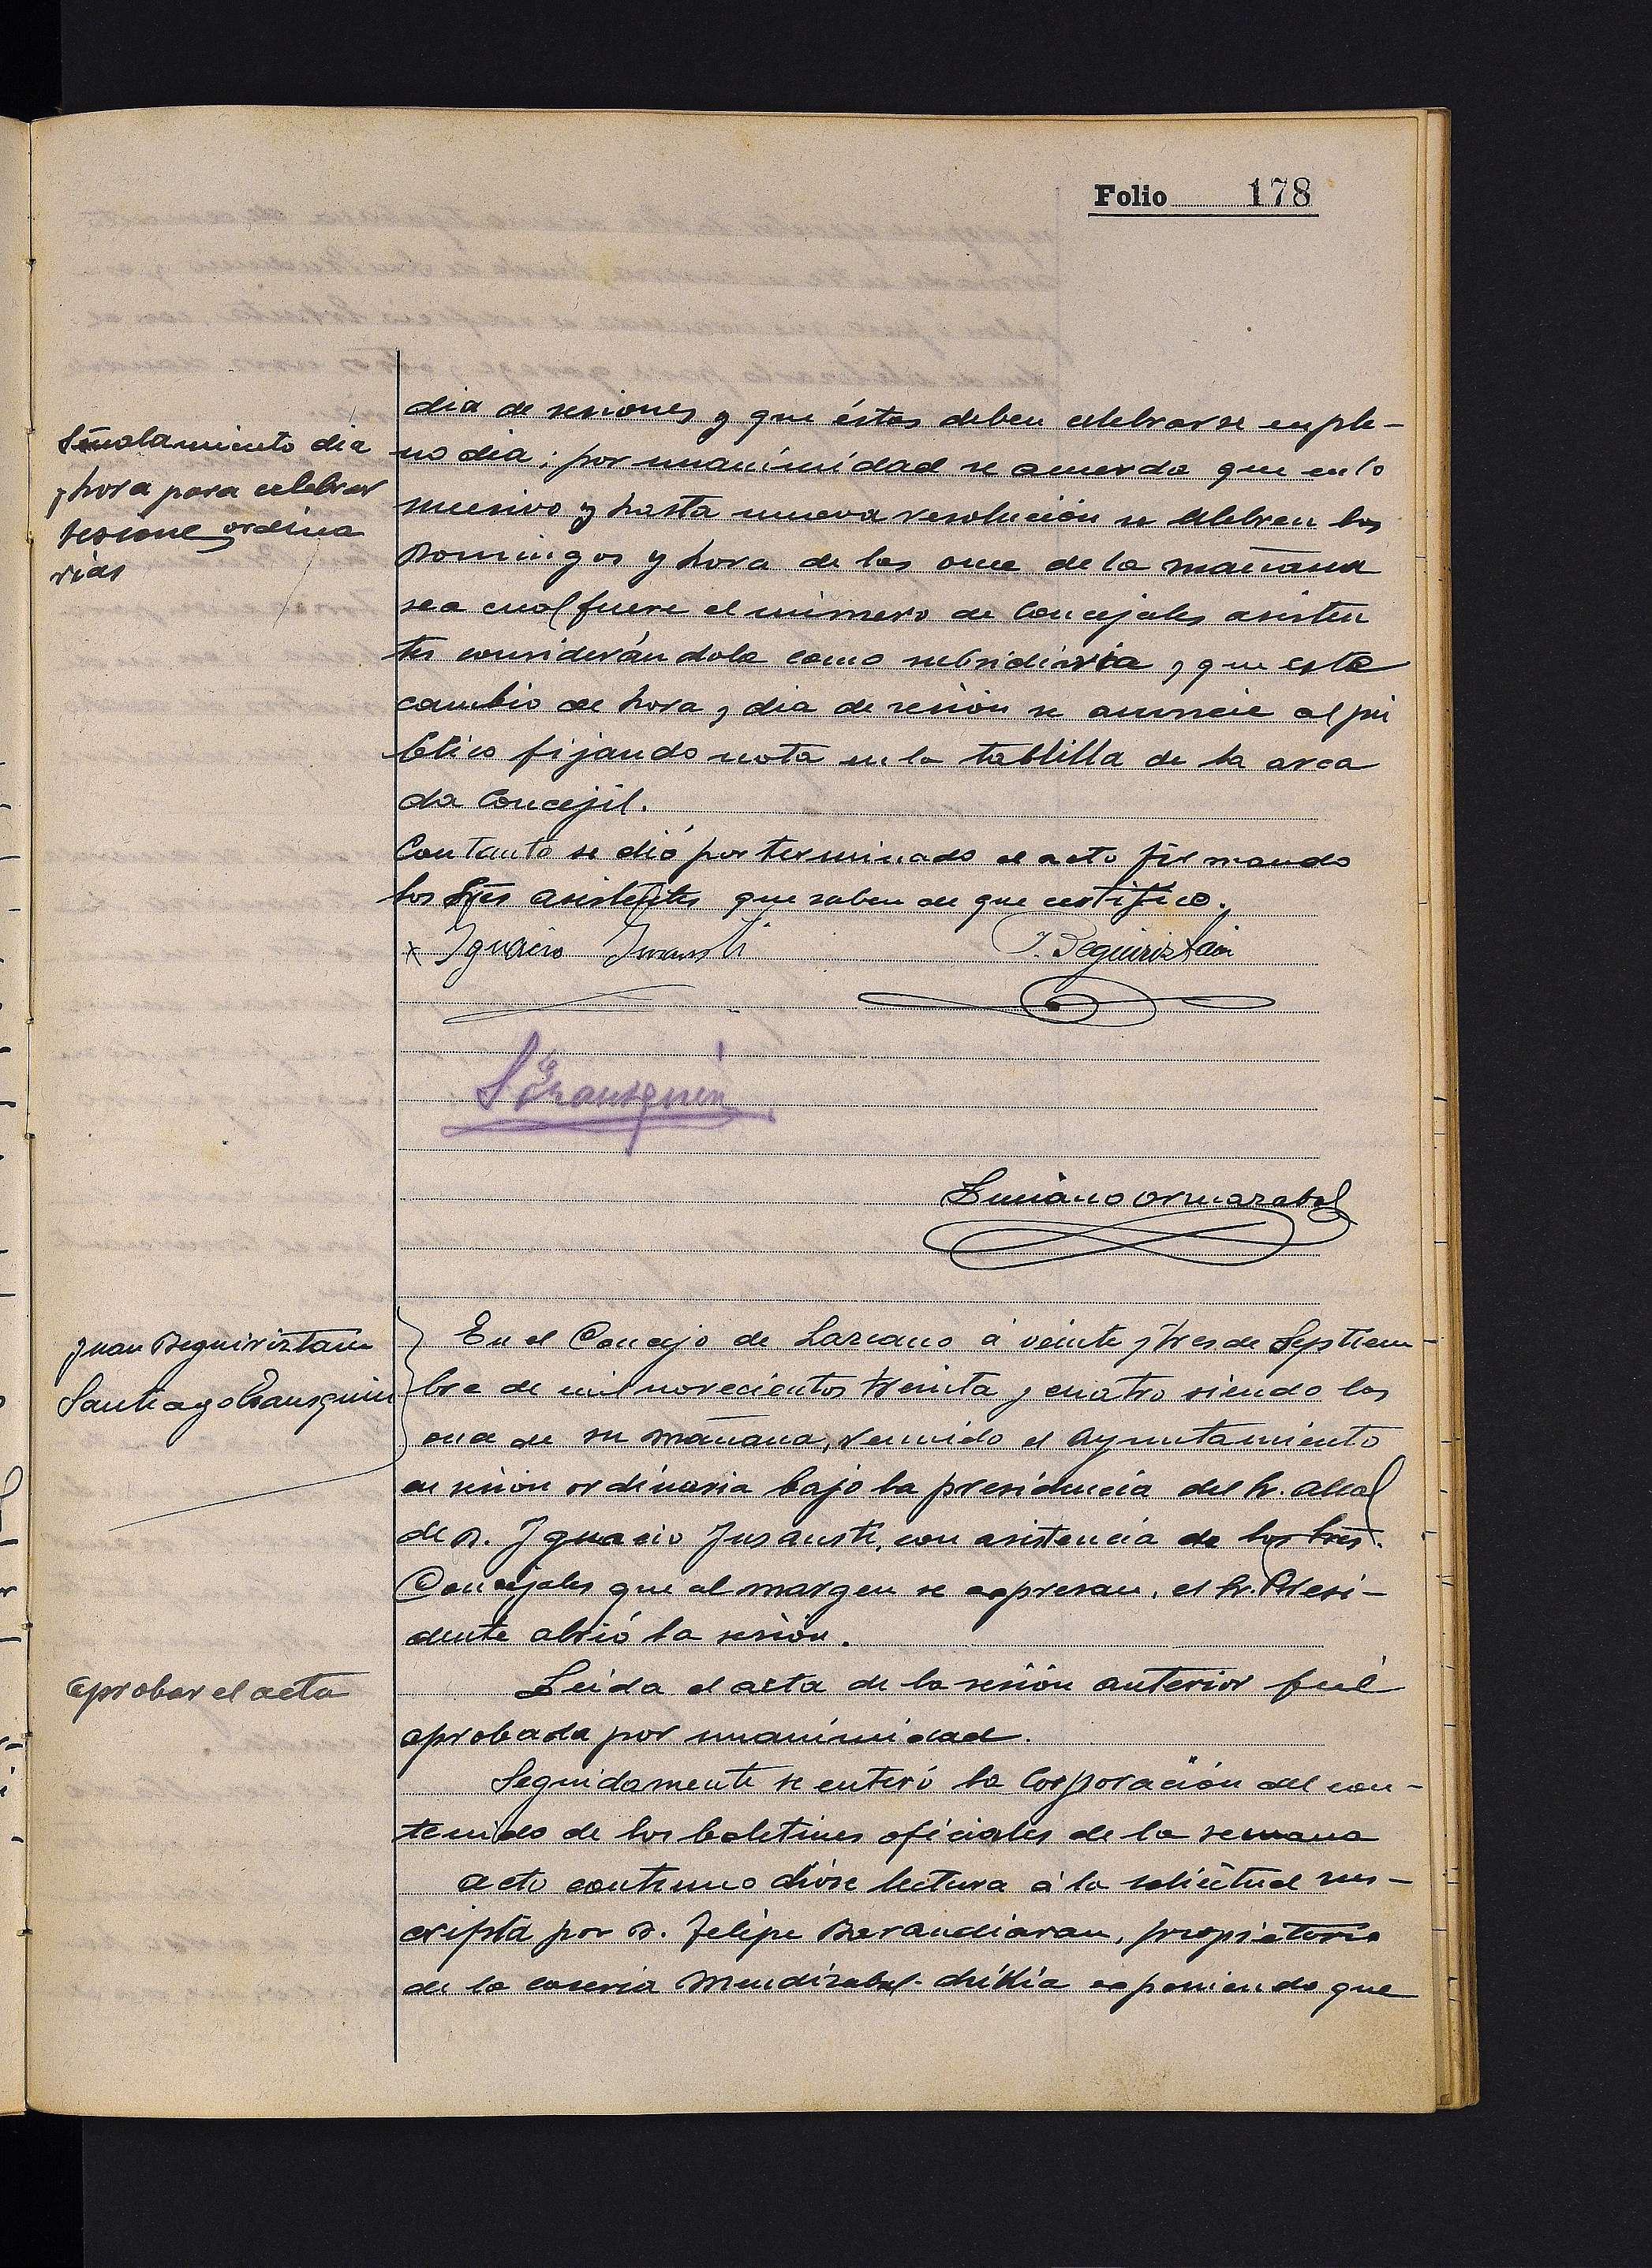 Folio 178
Señalamiento dia
y hora para celebrar
sesiones ordina
rias
dia de sesiones y que éstas deben celebrarse en ple-
no dia; por unanimidad se acuerda que en lo
sucesivo y hasta nueva resolución se celebren los
Domingos y hora de las once de la mañana
sea cual fuere el número de Concejales asisten
tes considerándola como subsidiaria y que este
cambio de hora y dia de sesión se anuncie al pú
blico fijando nota en la tablilla de la arca
da Concejil.
Con tanto se dió por terminado el acto firmando
los Sres asistentes que saben de que certifico.
Ignacio Insausti J. Beguiristain
S. Irausquin
Luciano Ormazabal
Juan Beguiristain
Santiago Irausquin
En el Concejo de Lazcano á veinte y tres de Septiem-
bre de mil novecientos treinta y cuatro siendo las
once de su mañana, reunido el Ayuntamiento
en sesión ordinaria bajo la presidencia del Sr. Alcal
de D. Ignacio Insausti, con asistencia de los Sres.
Concejales que al margen se expresan, el Sr. Presi-
dente abrió la sesión.
Aprobar el acta
Leida el acta de la sesión anterior fué
aprobada por unanimidad.
Seguidamente se enteró la Corporación del con-
tenido de los boletines oficiales de la semana
Acto continuo dióse lectura á la solicitud sus-
cripta por D. Felipe Barandiaran, propietario
de la caseria Mendizabal-chikia exponiendo que